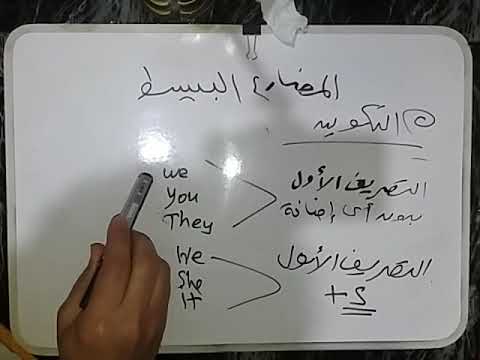 المضارع البسيط
التكوين
we
You
They
التصريف الأول
بدون أى إضافة
He
She
It
التصريف الأول
+ s